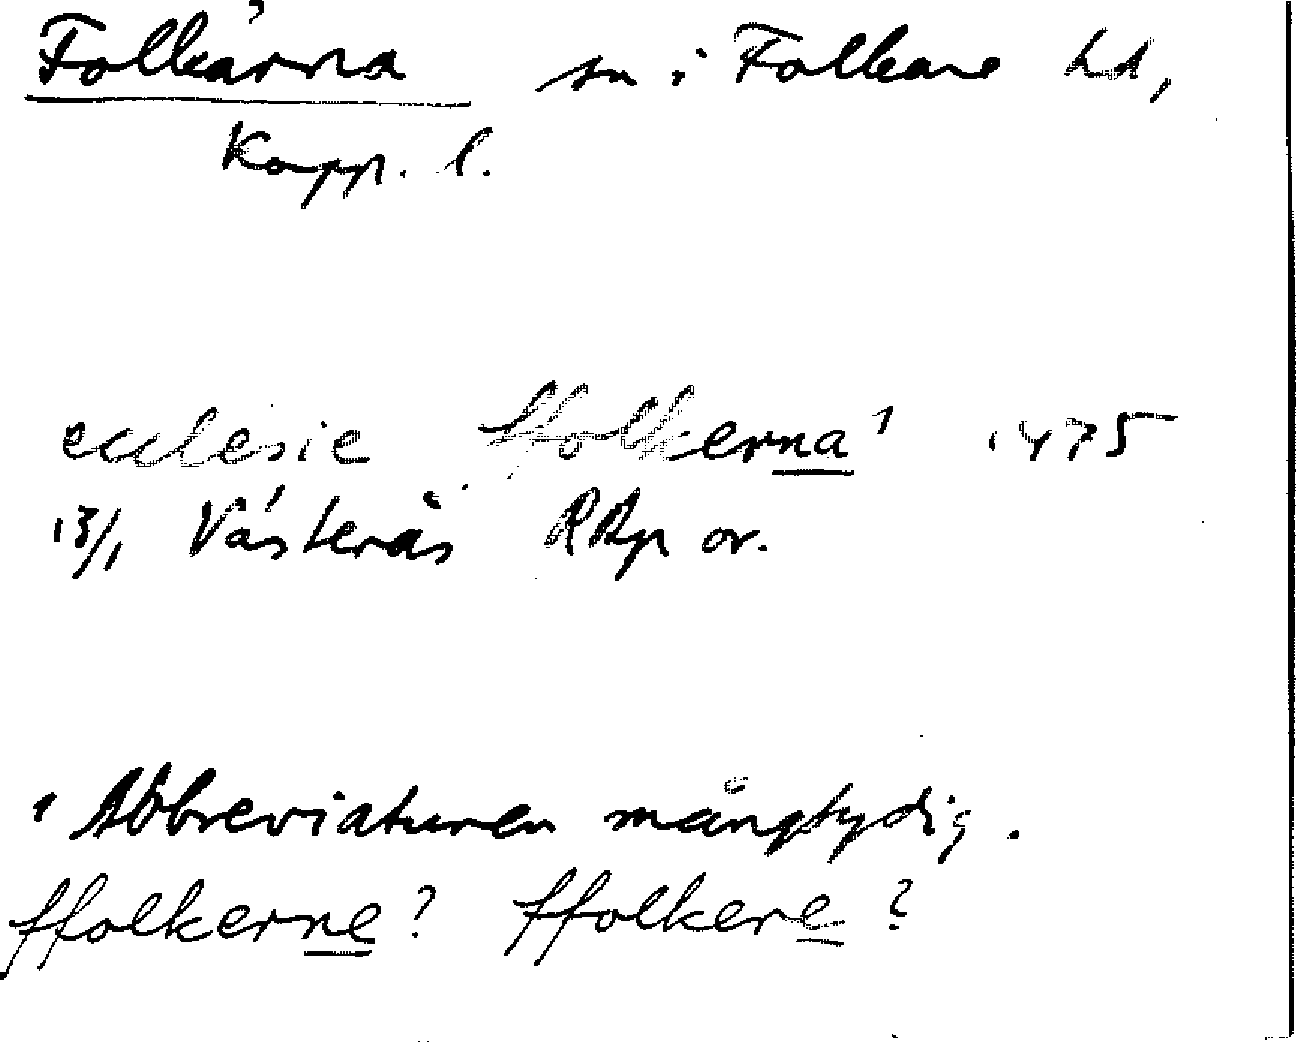 Folkärna sn i Folkare hd,
Kopp. l.
ecclesie ffolkerna¹ 1475
13/1 Västerås RApp or.
¹ Abbreviaturen mångtydig.
ffolkerne? ffolkere?